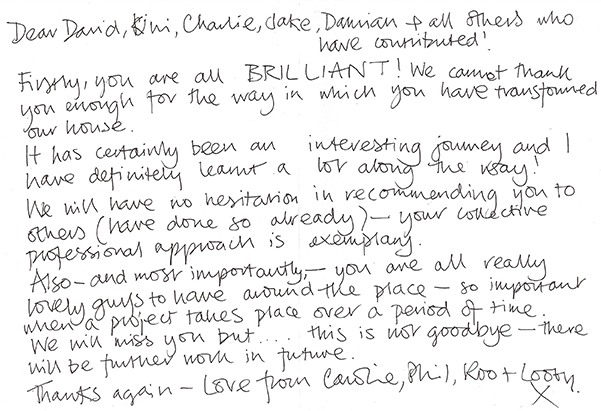 Dear David, Kini, Charlie, Jake, Damian + all others who
have contributed!
Firstly, you are all BRILLIANT! We cannot thank
you enough for the way in which you have transformed
our house.
It has certainly been an interesting journey and I
have definitely learnt a lot along the way!
We will have no hesitation in recommending you to
others (have done so already) – your collective
professional approach is exemplary.
Also – and most importantly, – you are all really
lovely guys to have around the place – so important
when a project takes place over a period of time.
We will miss you but.... this is not goodbye – there
will be further work in future.
Thanks again – Love from Caroline, Phil, Roo + Looty.
X